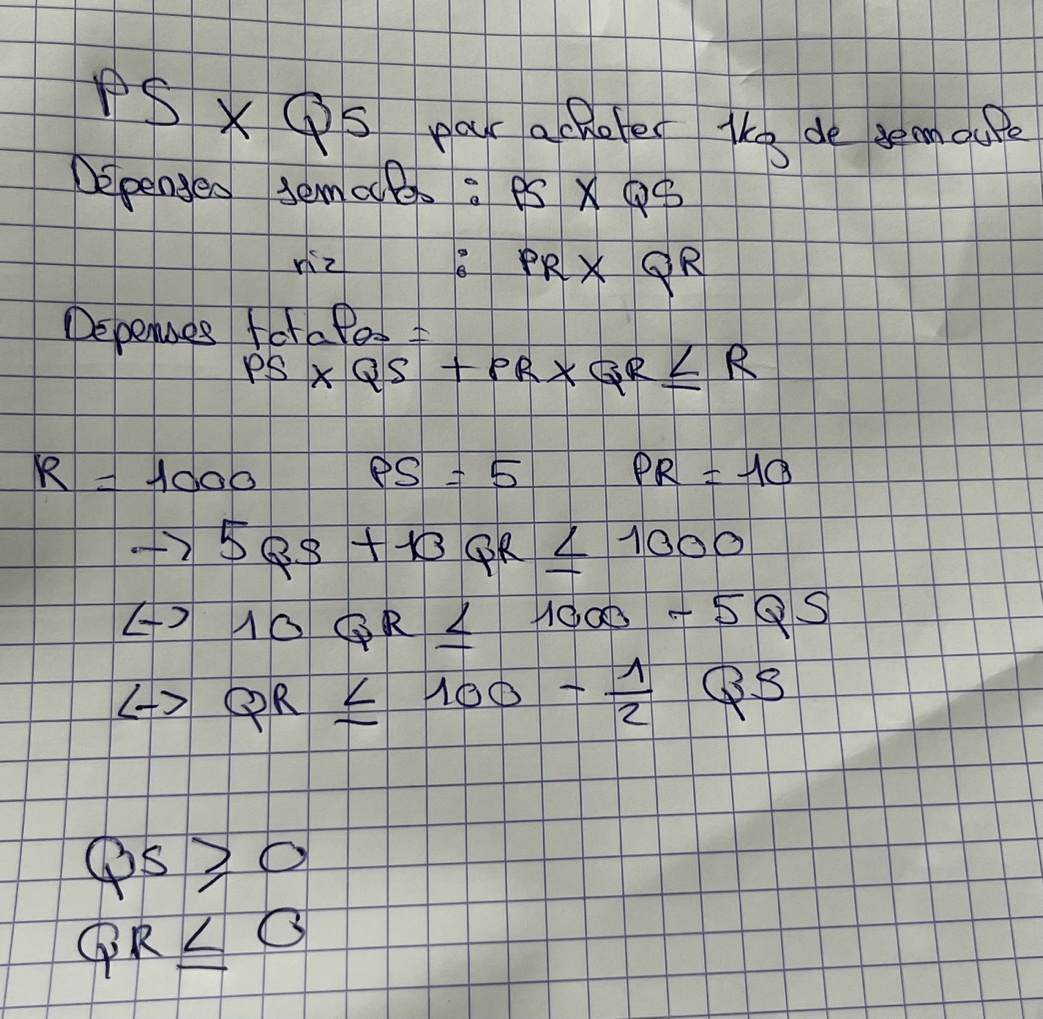 PS X QS pour acheter 1kg de semoule
Dépenses semoules : PS X QS
riz : PR X QR
Dépenses totales =
PS x QS + PR x QR ≤ R
R = 1000 PS = 5 PR = 10
-> 5 QS + 10 QR ≤ 1000
<-> 10 QR ≤ 1000 - 5 QS
<-> QR ≤ 100 - 1/2 QS
QS ≥ 0
QR ≤ 0